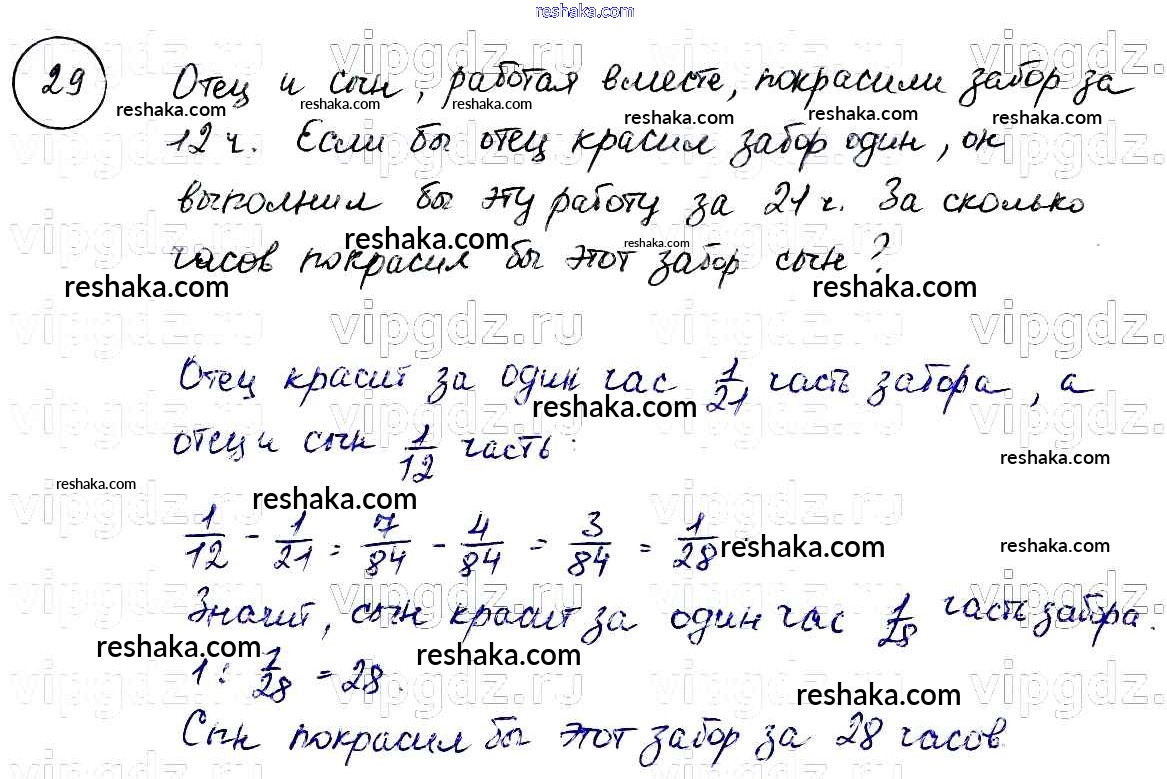 reshaka.com
29 Отец и сын, работая вместе, покрасили забор за
12 ч. Если бы отец красил забор один, он
выполнил бы эту работу за 21 ч. За сколько
часов покрасил бы этот забор сын?
Отец красит за один час 1/21 часть забора, а
отец и сын 1/12 часть:
1/12 - 1/21 = 7/84 - 4/84 = 3/84 = 1/28.
Значит, сын красит за один час 1/28 часть забора.
1 : 1/28 = 28.
Сын покрасил бы этот забор за 28 часов.
vipgdz.ru
reshaka.com